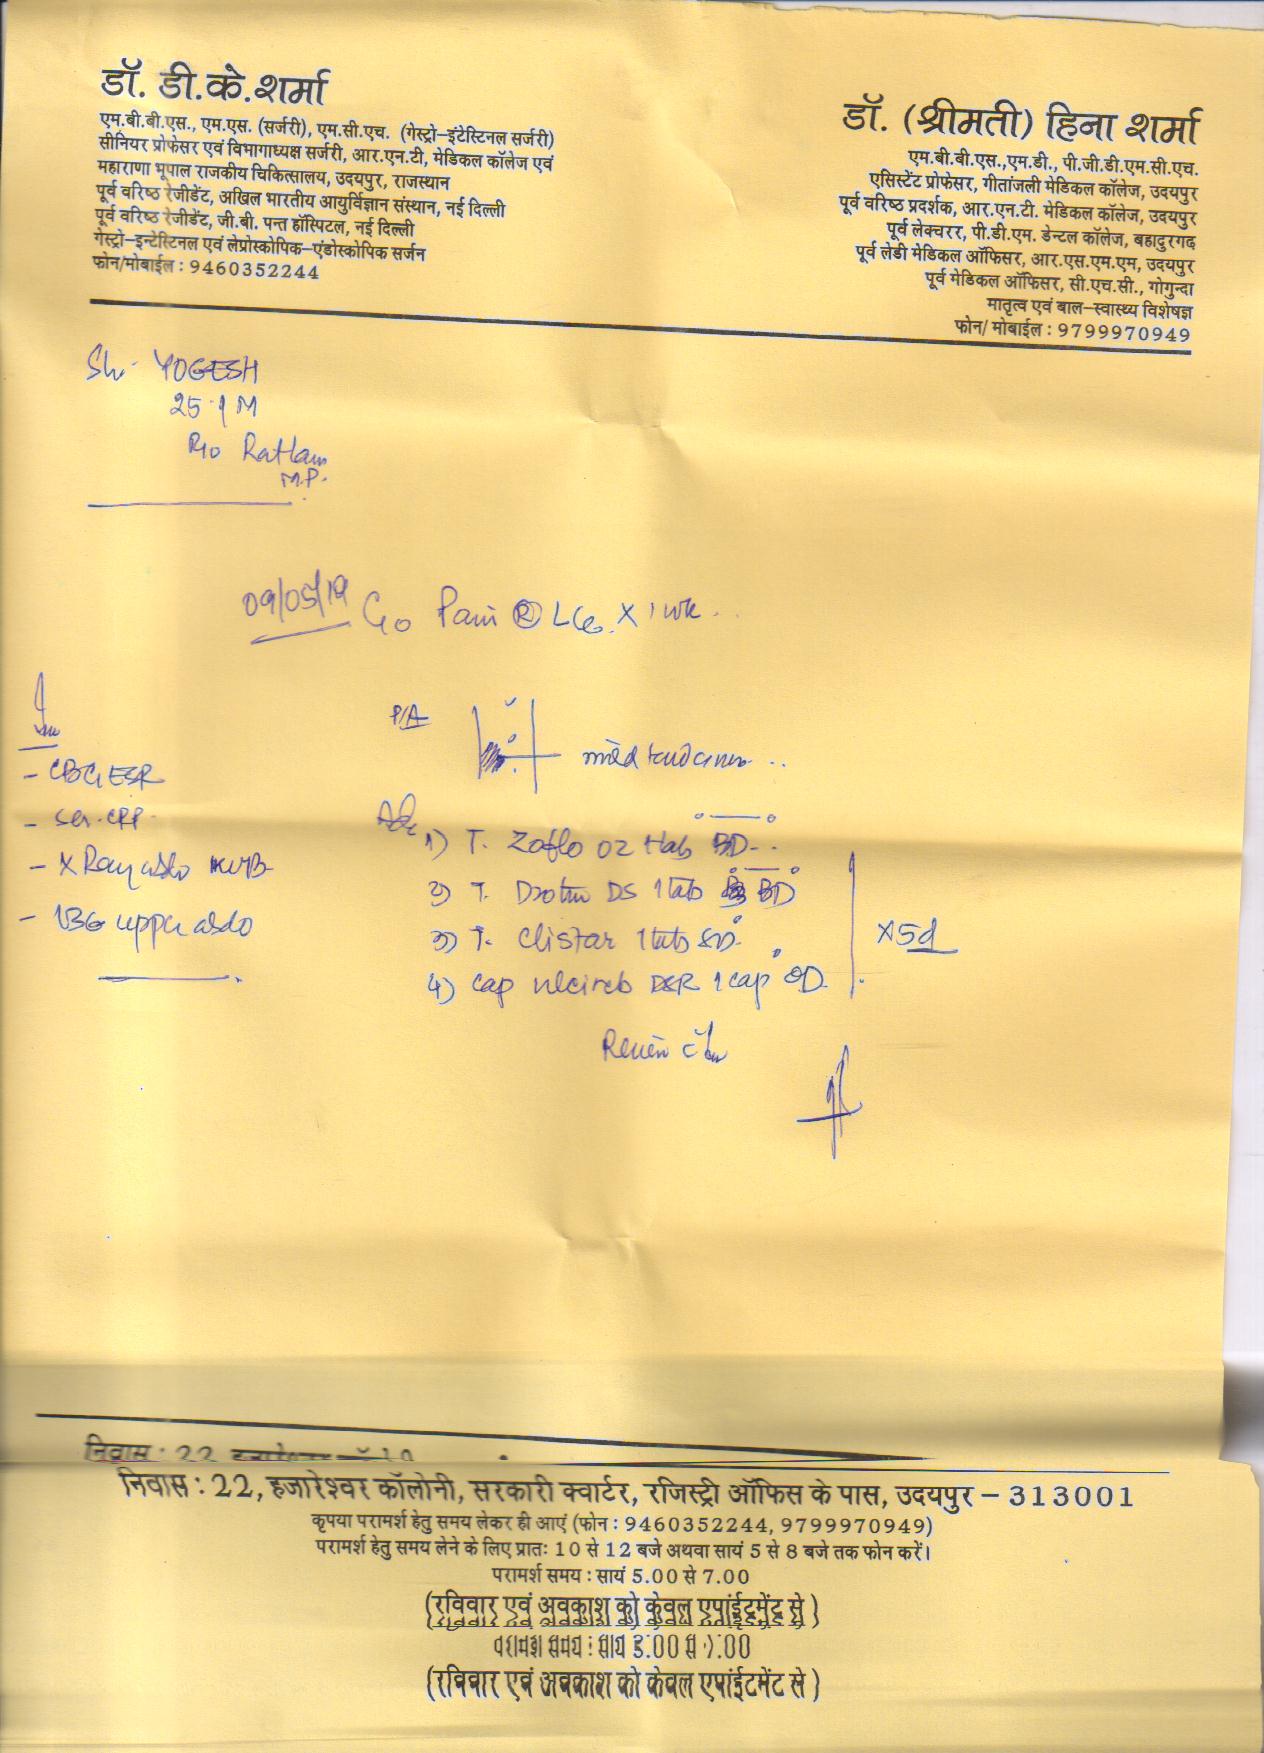 डॉ. डी.के.शर्मा
एम.बी.बी.एस., एम.एस. (सर्जरी), एम.सी.एच. (गेस्ट्रो–इंटेस्टिनल सर्जरी)
सीनियर प्रोफेसर एवं विभागाध्यक्ष सर्जरी, आर.एन.टी, मेडिकल कॉलेज एवं
महाराणा भूपाल राजकीय चिकित्सालय, उदयपुर, राजस्थान
पूर्व वरिष्ठ रेजीडेंट, अखिल भारतीय आयुर्विज्ञान संस्थान, नई दिल्ली
पूर्व वरिष्ठ रेजीडेंट, जी.बी. पन्त हॉस्पिटल, नई दिल्ली
गेस्ट्रो–इन्टेस्टिनल एवं लेप्रोस्कोपिक–एंडोस्कोपिक सर्जन
फोन/मोबाईल : 9460352244
डॉ. (श्रीमती) हिना शर्मा
एम.बी.बी.एस.,एम.डी., पी.जी.डी.एम.सी.एच.
एसिस्टेंट प्रोफेसर, गीतांजली मेडिकल कॉलेज, उदयपुर
पूर्व वरिष्ठ प्रदर्शक, आर.एन.टी. मेडिकल कॉलेज, उदयपुर
पूर्व लेक्चरर, पी.डी.एम. डेन्टल कॉलेज, बहादुरगढ़
पूर्व लेडी मेडिकल ऑफिसर, आर.एस.एम.एम, उदयपुर
पूर्व मेडिकल ऑफिसर, सी.एच.सी., गोगुन्दा
मातृत्व एवं बाल–स्वास्थ्य विशेषज्ञ
फोन/ मोबाईल : 9799970949
Sh. YOGESH
25 / M
R/o Ratlam
M.P.
09/05/19 C/o Pain Ⓡ X 1 wk
P/A
mild
Inv
- CBC, ESR
- Ser.
- X Ray abdo KUB
- upper abdo
Adv
1) T. Zoflo OZ 1 tab BD
2) T. DS 1 tab BD
3) T. Clistar 1 tab
4) Cap DSR 1 cap OD
X 5d
Review c Inv
निवास : 22,
निवास : 22, हजारेश्वर कॉलोनी, सरकारी क्वार्टर, रजिस्ट्री ऑफिस के पास, उदयपुर – 313001
कृपया परामर्श हेतु समय लेकर ही आएं (फोन : 9460352244, 9799970949)
परामर्श हेतु समय लेने के लिए प्रातः 10 से 12 बजे अथवा सायं 5 से 8 बजे तक फोन करें।
परामर्श समय : सायं 5.00 से 7.00
(रविवार एवं अवकाश को केवल एपांईटमेंट से)
परामर्श समय : सायं 5.00 से 7.00
(रविवार एवं अवकाश को केवल एपांईटमेंट से)